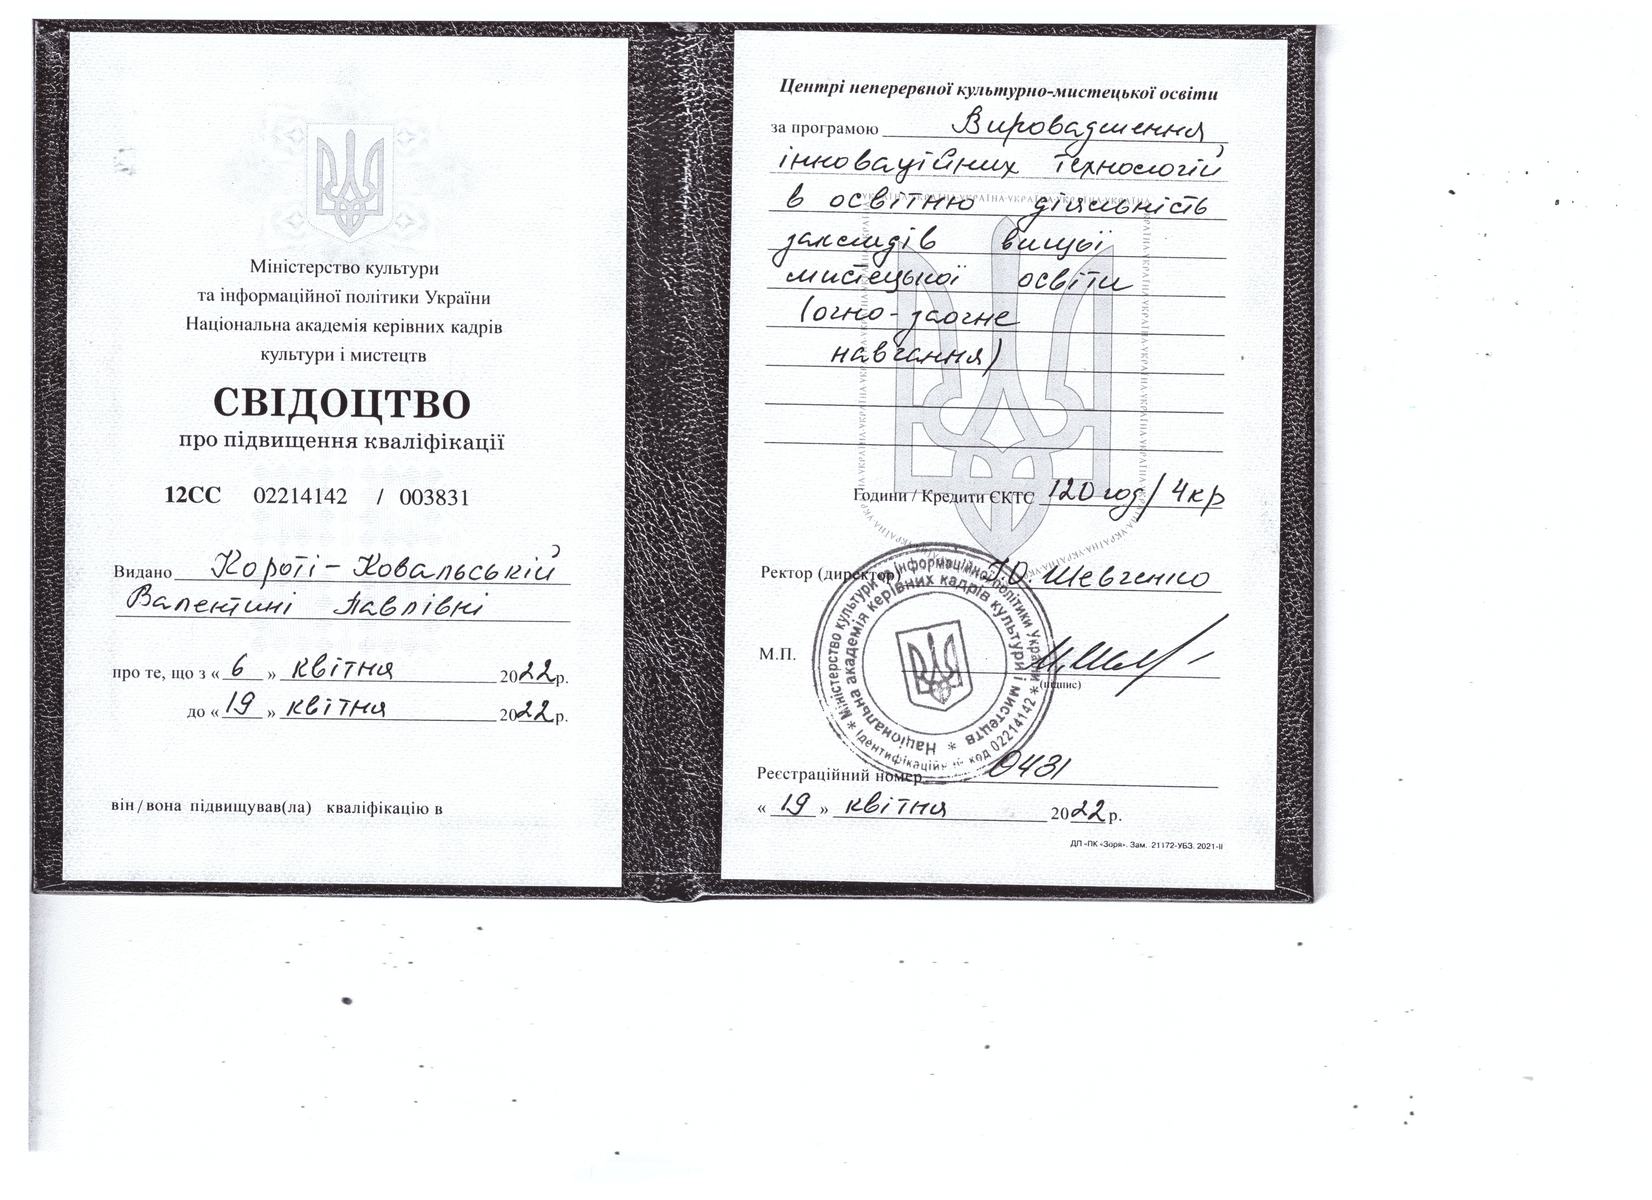 Міністерство культури
та інформаційної політики України
Національна академія керівних кадрів
культури і мистецтв
СВІДОЦТВО
про підвищення кваліфікації
12СС 02214142 / 003831
Видано Короті-Ковальській
Валентині Павлівні
про те, що з « 6 » квітня 2022р.
до « 19 » квітня 2022р.
він/вона підвищував(ла) кваліфікацію в
Центрі неперервної культурно-мистецької освіти
за програмою Впровадження
інноваційних технологій
в освітню діяльність
закладів вищої
мистецької освіти
(очно-заочне
навчання)
Години / Кредити ЄКТС 120 год/ 4кр
Ректор (директор) Шевченко
М.П.
(підпис)
Міністерство культури та інформаційної політики України * Ідентифікаційний код 02214142 *
Національна академія керівних кадрів культури і мистецтв *
Реєстраційний номер 0431
« 19 » квітня 2022р.
ДП «ПК «Зоря». Зам. 21172-УБЗ. 2021-ІІ